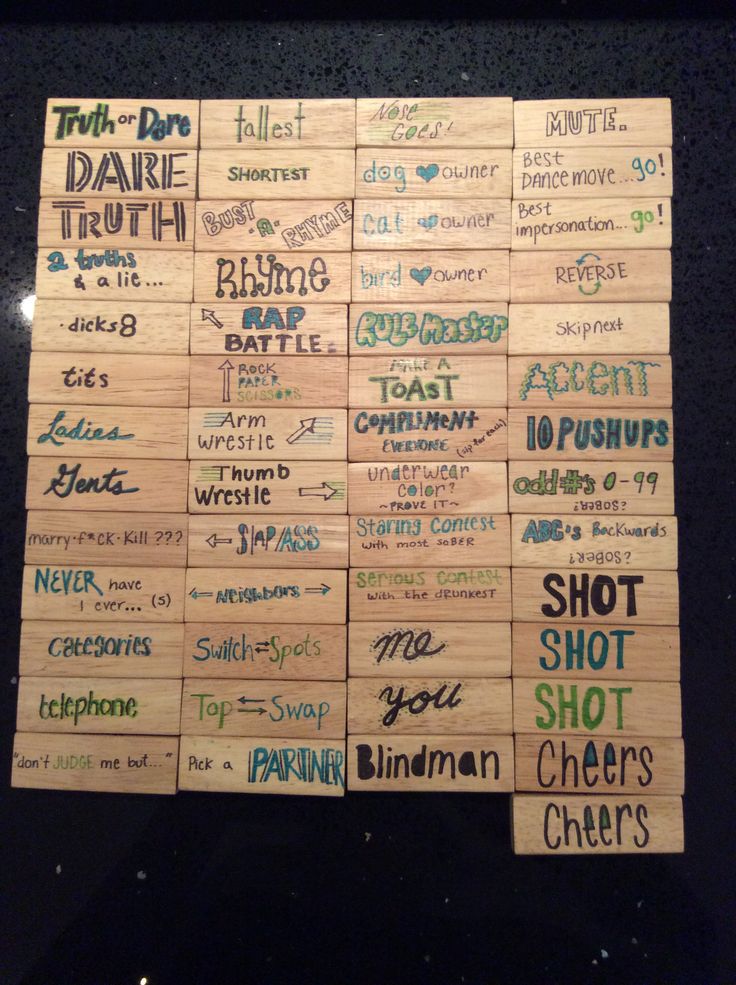 Truth or Dare
DARE
TRUTH
2 truths
& a lie...
dicks 8
tits
Ladies
Gents
marry·f*ck·kill ???
NEVER have
I ever... (5)
categories
telephone
"don't JUDGE me but..."
tallest
SHORTEST
BUST
-A-
RHYME
Rhyme
RAP
BATTLE
ROCK
PAPER
SCISSORS
Arm
Wrestle
Thumb
Wrestle
← SlAP/ASS
← Neighbors →
Switch ⇌ Spots
Top ⇌ Swap
Pick a PARTNER
Nose
Goes!
dog ♥ owner
cat ♥ owner
bird ♥ owner
RULE Master
MAKE A
TOAST
COMPLIMENT
EVERYONE (sip for each)
underwear
color?
~PROVE IT~
Staring Contest
with most SOBER
serious contest
with the DRUNKEST
me
you
Blindman
MUTE.
Best
DANCE move...go!
Best
impersonation...go!
REVERSE
Skip next
ACCENT
10 PUSHUPS
odd #'s 0-99
¿SOBER?
ABC's Backwards
¿SOBER?
SHOT
SHOT
SHOT
Cheers
Cheers